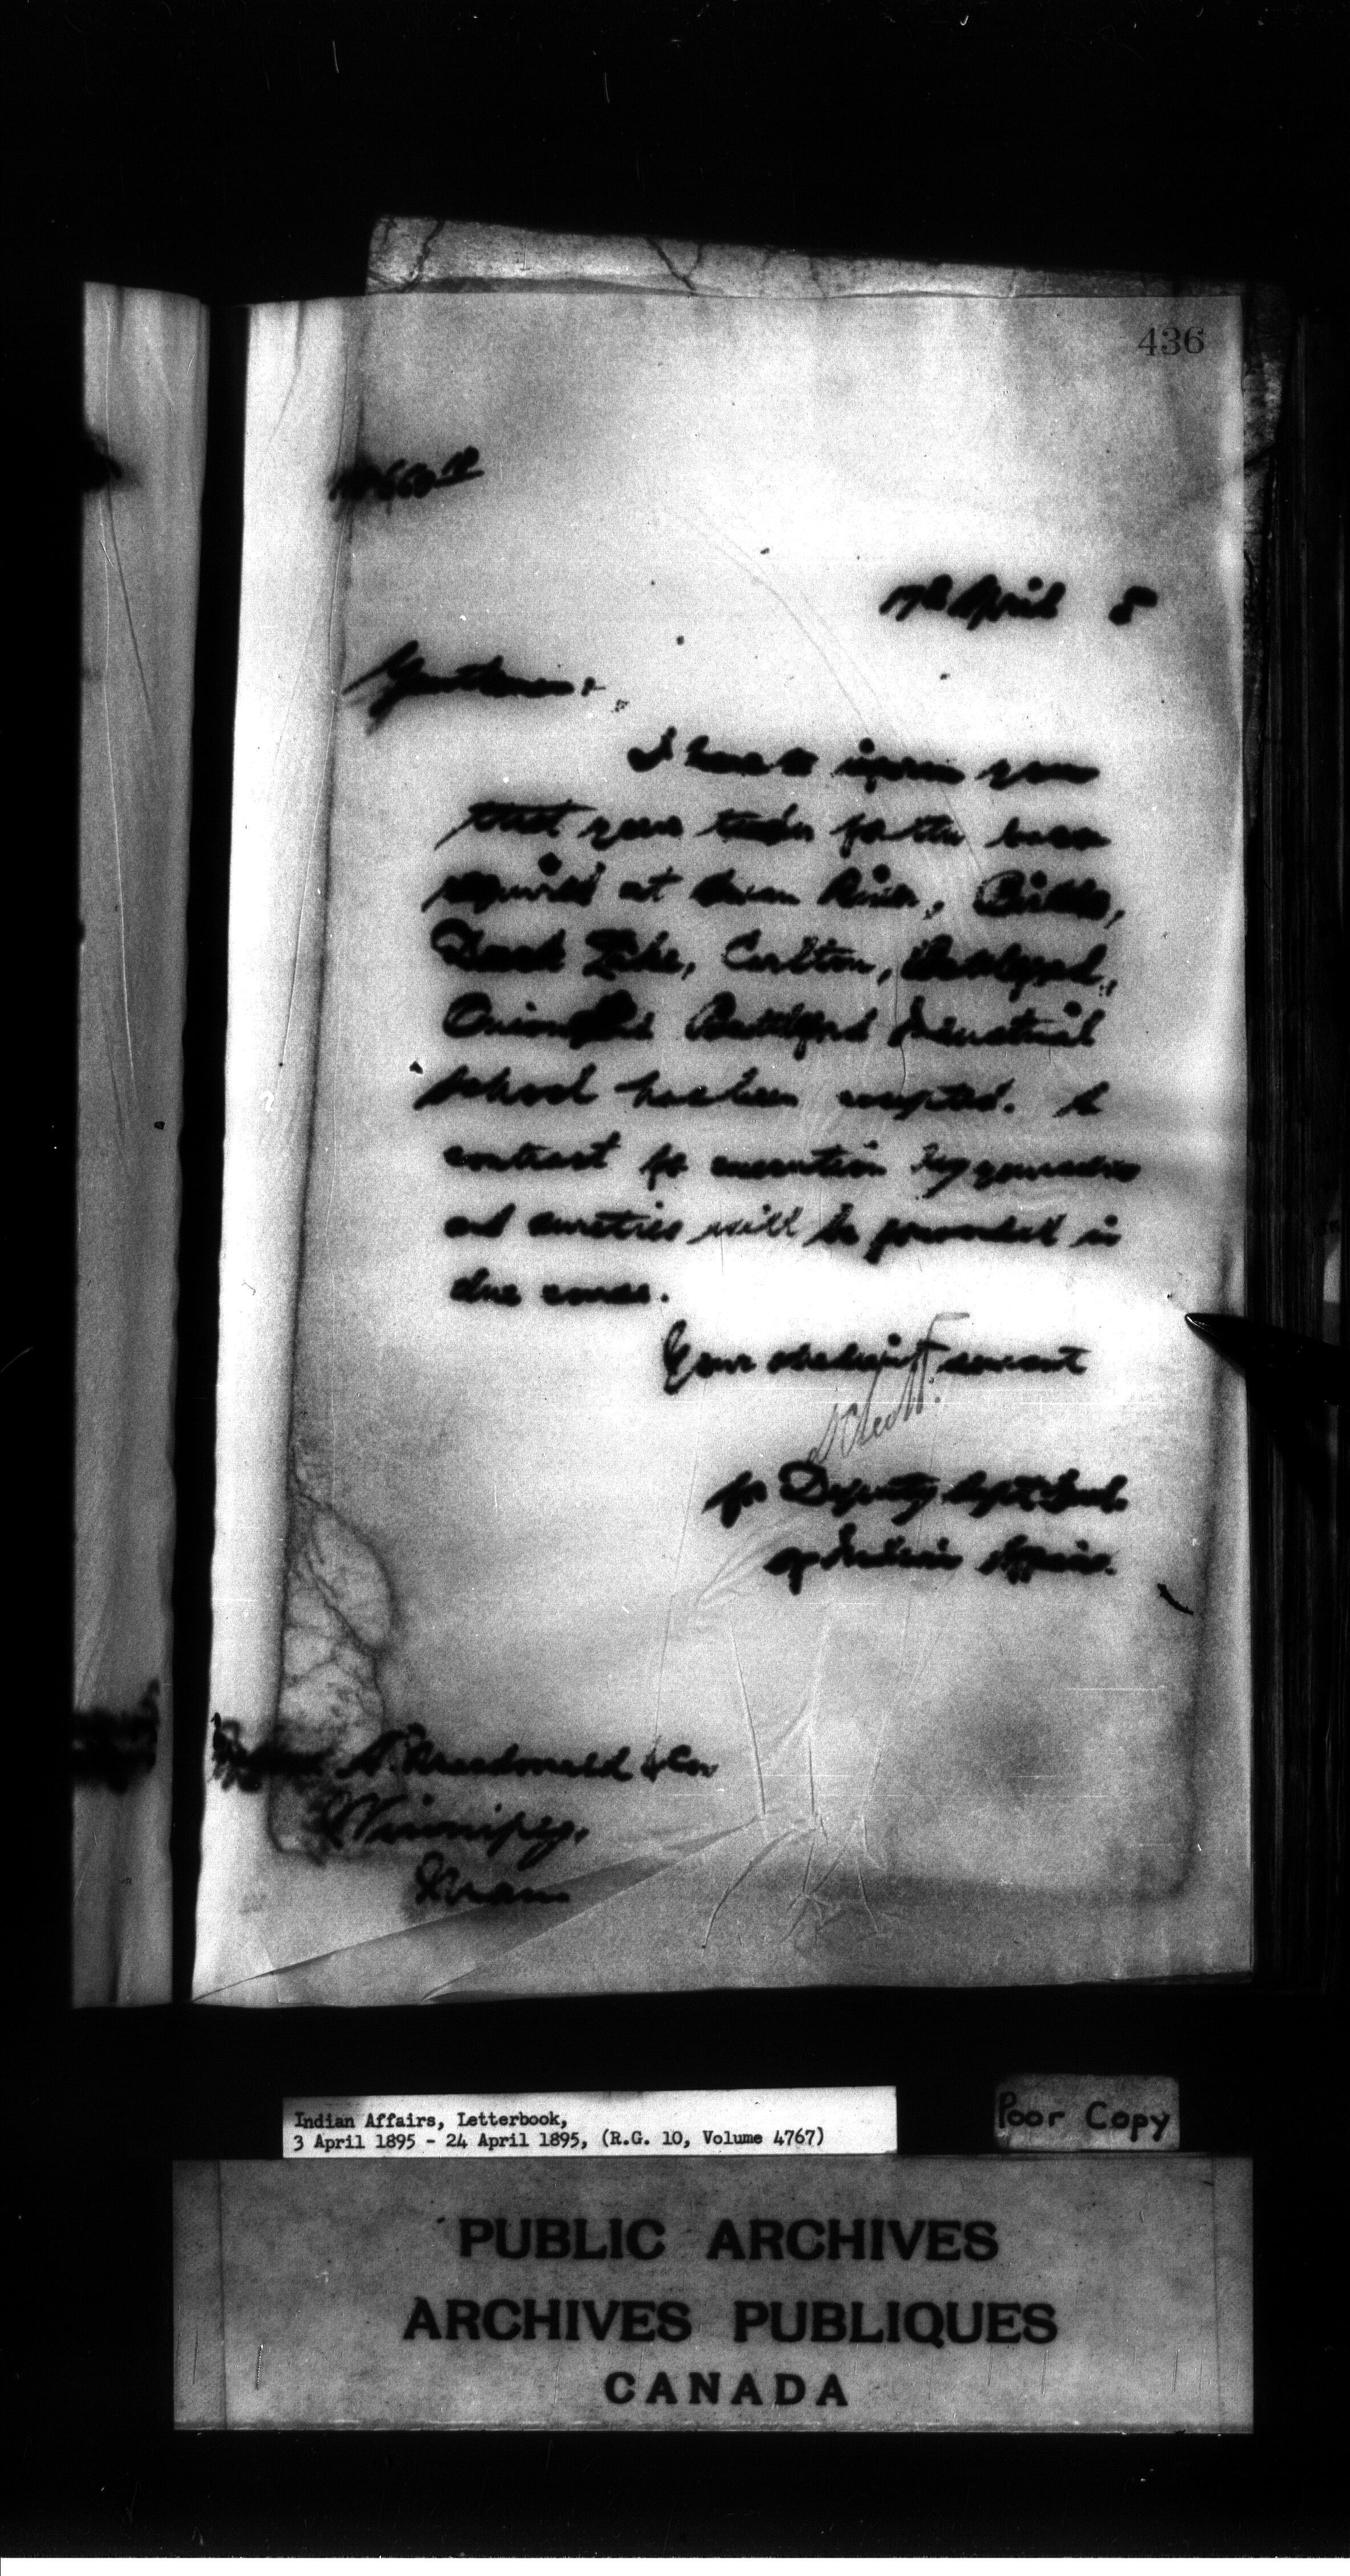 436
17th April 5
Gentlemen:
I have to inform you
that your tender for the bacon
required at Swan River, Birtle,
Duck Lake, Carlton, Battleford,
Onion Battleford Industrial
School has been accepted. A
contract for execution by yourselves
and sureties will be forwarded in
due course.
Your obedient servant
for Deputy Supt. Genl.
of Indian Affairs.
A. Macdonald & Co
Winnipeg,
Man
Indian Affairs, Letterbook,
3 April 1895 - 24 April 1895, (R.G. 10, Volume 4767)
Poor Copy
PUBLIC ARCHIVES
ARCHIVES PUBLIQUES
CANADA